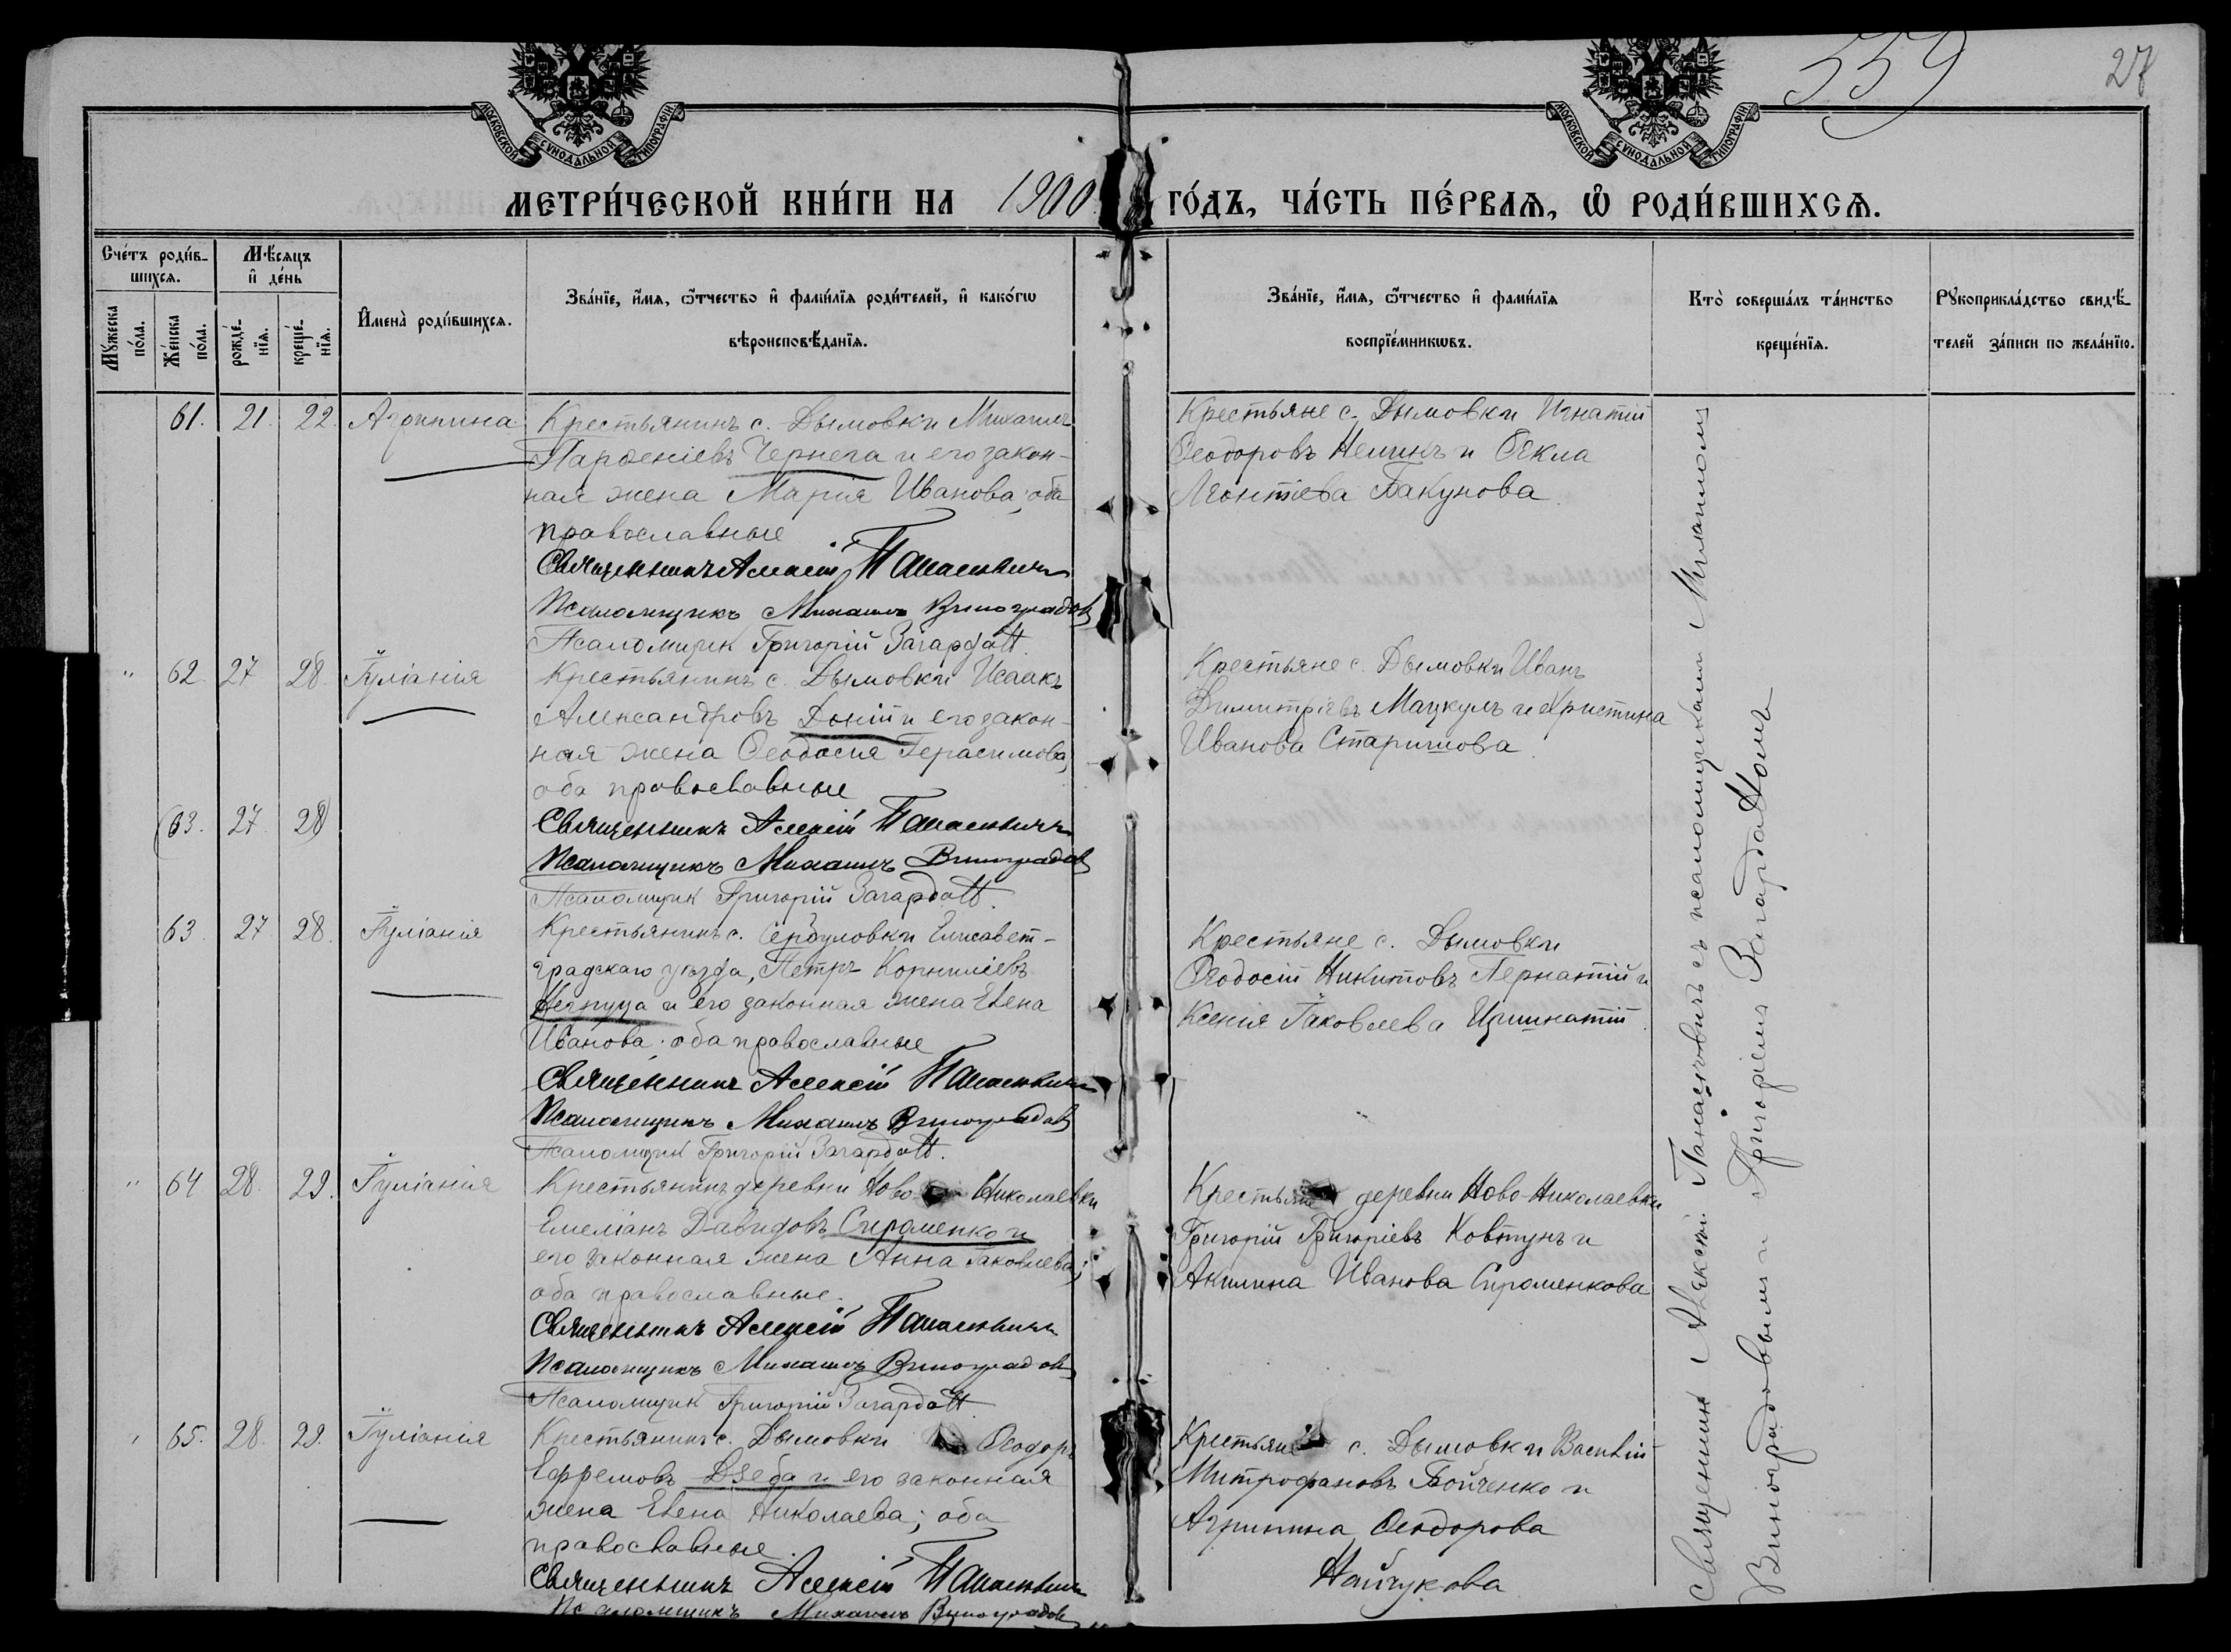 559
27
МОСКОВСКОЙ СѴНОДАЛЬНОЙ ТИПОГРАФІИ
МОСКОВСКОЙ СѴНОДАЛЬНОЙ ТИПОГРАФІИ
МЕТРИ́ЧЕСКОЙ КНИ́ГИ НА 1900 ГО́ДЪ, ЧА́СТЬ ПЕ́РВАѦ, Ѡ҆ РОДИ́ВШИХСѦ.
Сче́тъ роди́в-
шихсѧ.
Мꙋ́жеска по́ла.
Же́нска по́ла.
Мѣ́сѧцъ
и҆ де́нь
рожде́-
нїѧ.
креще́-
нїѧ.
И҆мена̀ роди́вшихсѧ.
Зва́нїе, и҆́мѧ, ѻ҆́тчество и҆ фами́лїѧ роди́телей, и҆ како́гѡ
вѣроисповѣ́данїѧ.
Зва́нїе, и҆́мѧ, ѻ҆́тчество и҆ фами́лїѧ
воспрїе́мникѡвъ.
Кто̀ соверша́лъ та́инство
креще́нїѧ.
Рꙋкоприкла́дство свидѣ́-
телей за́писи по жела́нїю.
61. 21. 22. Агрипина
Крестьянинъ с. Дымовки Михаилъ
Парѳеніевъ Чернега и его закон-
ная жена Марія Иванова; оба
православные
Священникъ Алексій Панасевичъ
Псаломщикъ Михаилъ Виноградовъ
Псаломщик Григорій Загардан
Крестьяне с. Дымовки Игнатій
Ѳеодоровъ и Ѳекла
Леонтіева Бакунова
" 62. 27 28. Іуліанія
Крестьянинъ с. Дымовки Исаакъ
Александровъ Доній и его закон-
ная жена Ѳеодосія Герасимова;
оба православные
Священникъ Алексій Панасевичъ
Псаломщикъ Михаилъ Виноградовъ
Псаломщик Григорій Загардан
Крестьяне с. Дымовки Иванъ
Димитріевъ Мацкулъ и Христина
Иванова Старишова
(63. 27. 28)
63. 27. 28. Іуліанія
Крестьянинъ с. Сербуловки Елисавет-
градскаго уѣзда, Петръ Корниліевъ
и его законная жена Елена
Иванова; оба православные
Священникъ Алексій Панасевичъ
Псаломщикъ Михаилъ Виноградовъ
Псаломщик Григорій Загардан.
Крестьяне с. Дымовки
Ѳеодосій Никитовъ Пернатій и
Ксенія Іаковлева
" 64 28. 29. Іуліанія
Крестьянинъ деревни Ново Николаевки
Емеліанъ Давидовъ Сироменко и
его законная жена Анна Іаковлева;
оба православные.
Священникъ Алексій Панасевичъ
Псаломщикъ Михаилъ Виноградовъ
Псаломщик Григорій Загардан
Крестьяне деревни Ново-Николаевки
Григорій Григоріевъ Ковтунъ и
Акилина Иванова Сироменкова
" 65. 28. 29. Іуліанія
Крестьянинъ с. Дымовки Ѳеодоръ
Ефремовъ Дзеба и его законная
жена Елена Николаева; оба
православные.
Священникъ Алексій Панасевичъ
Псаломщикъ Михаилъ Виноградовъ
Крестьяне с. Дымовки Василій
Митрофановъ Бойченко и
Агрипина Ѳеодорова
Найчукова
Священник Алексій Панасѣвичъ съ псаломщиками Михаиломъ
Виноградовымъ и Григоріемъ Загарданомъ